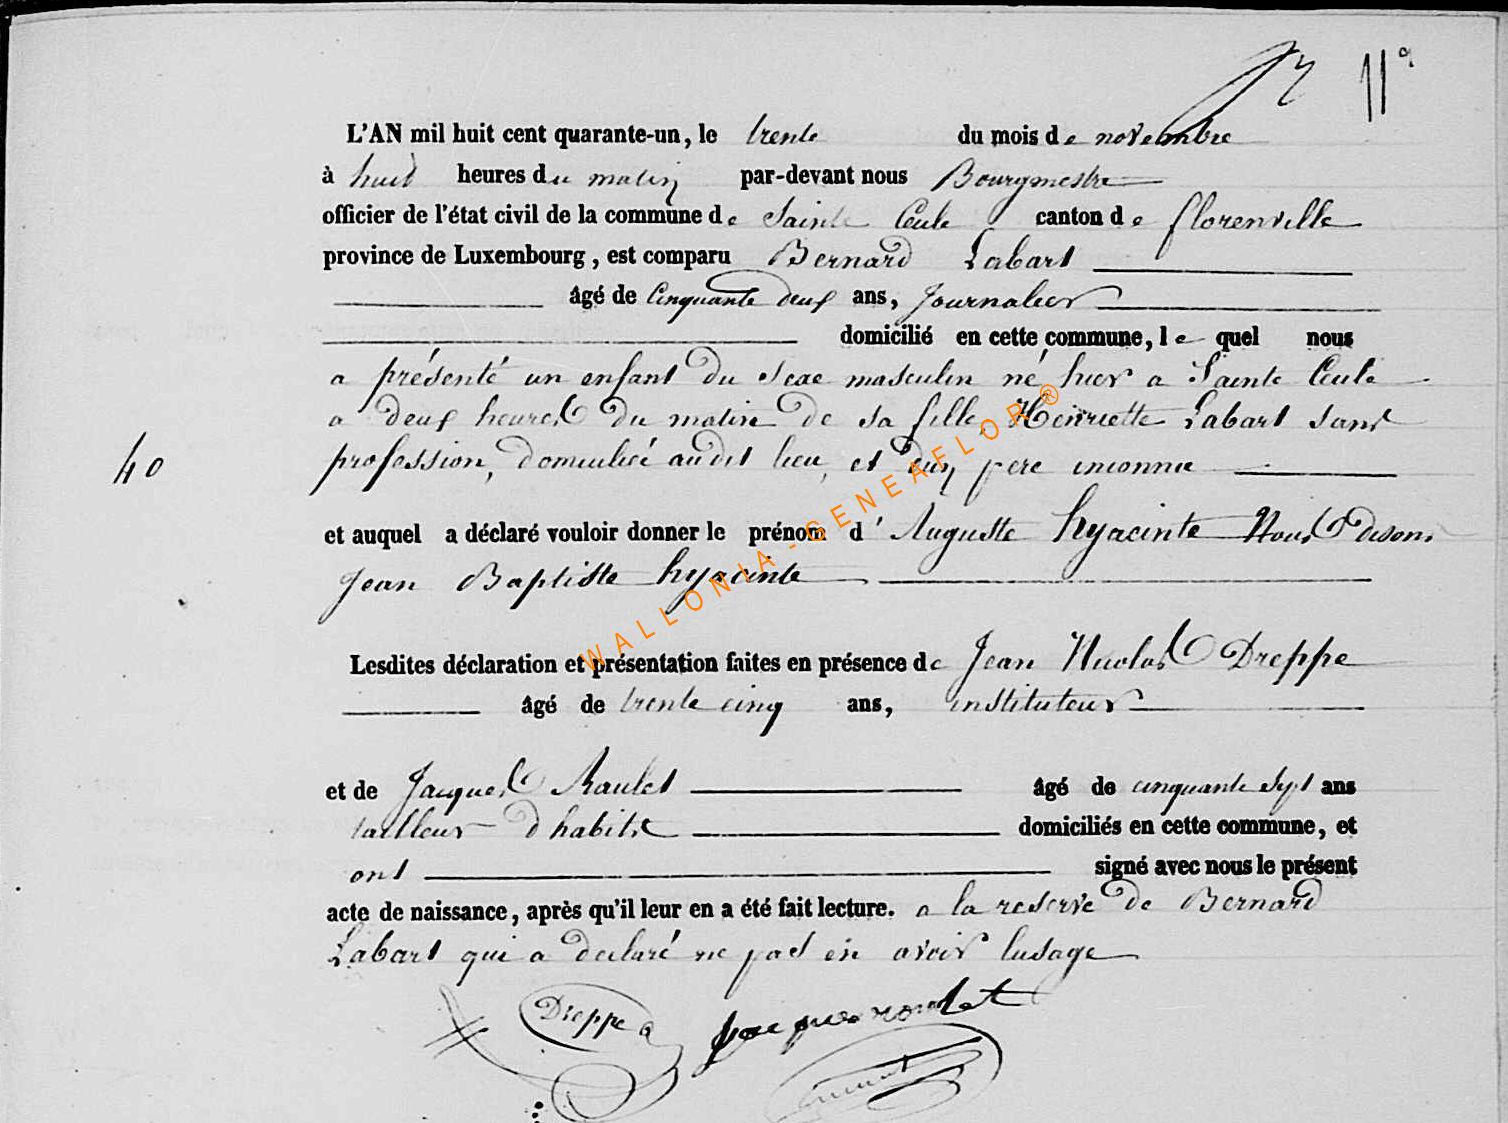 11°
L'AN mil huit cent quarante-un, le trente du mois de novembre
à huit heures du matin par-devant nous Bourgmestre
officier de l'état civil de la commune de Sainte Cecile canton de florenville
province de Luxembourg, est comparu Bernard Labart
âgé de Cinquante deux ans, Journalier
domicilié en cette commune, le quel nous
a présenté un enfant du sexe masculin né hier a Sainte Cecile
a deux heures du matin de sa fille Henriette Labart sans
profession, domiciliée audit lieu, et d'un père inconnu
40
et auquel a déclaré vouloir donner le prénom d' Auguste hyacinte Nous disons
Jean Baptiste hyacinte
Lesdites déclaration et présentation faites en présence de Jean Nicolas Dreppe
âgé de trente cinq ans, instituteur
et de Jacques Raulet âgé de cinquante sept ans
tailleur d'habits domiciliés en cette commune, et
ont signé avec nous le présent
acte de naissance, après qu'il leur en a été fait lecture. a la reserve de Bernard
Labart qui a declaré ne pas en avoir lusage
Dreppe Jacques roulet
WALLONIA - GENEAFLOR ®